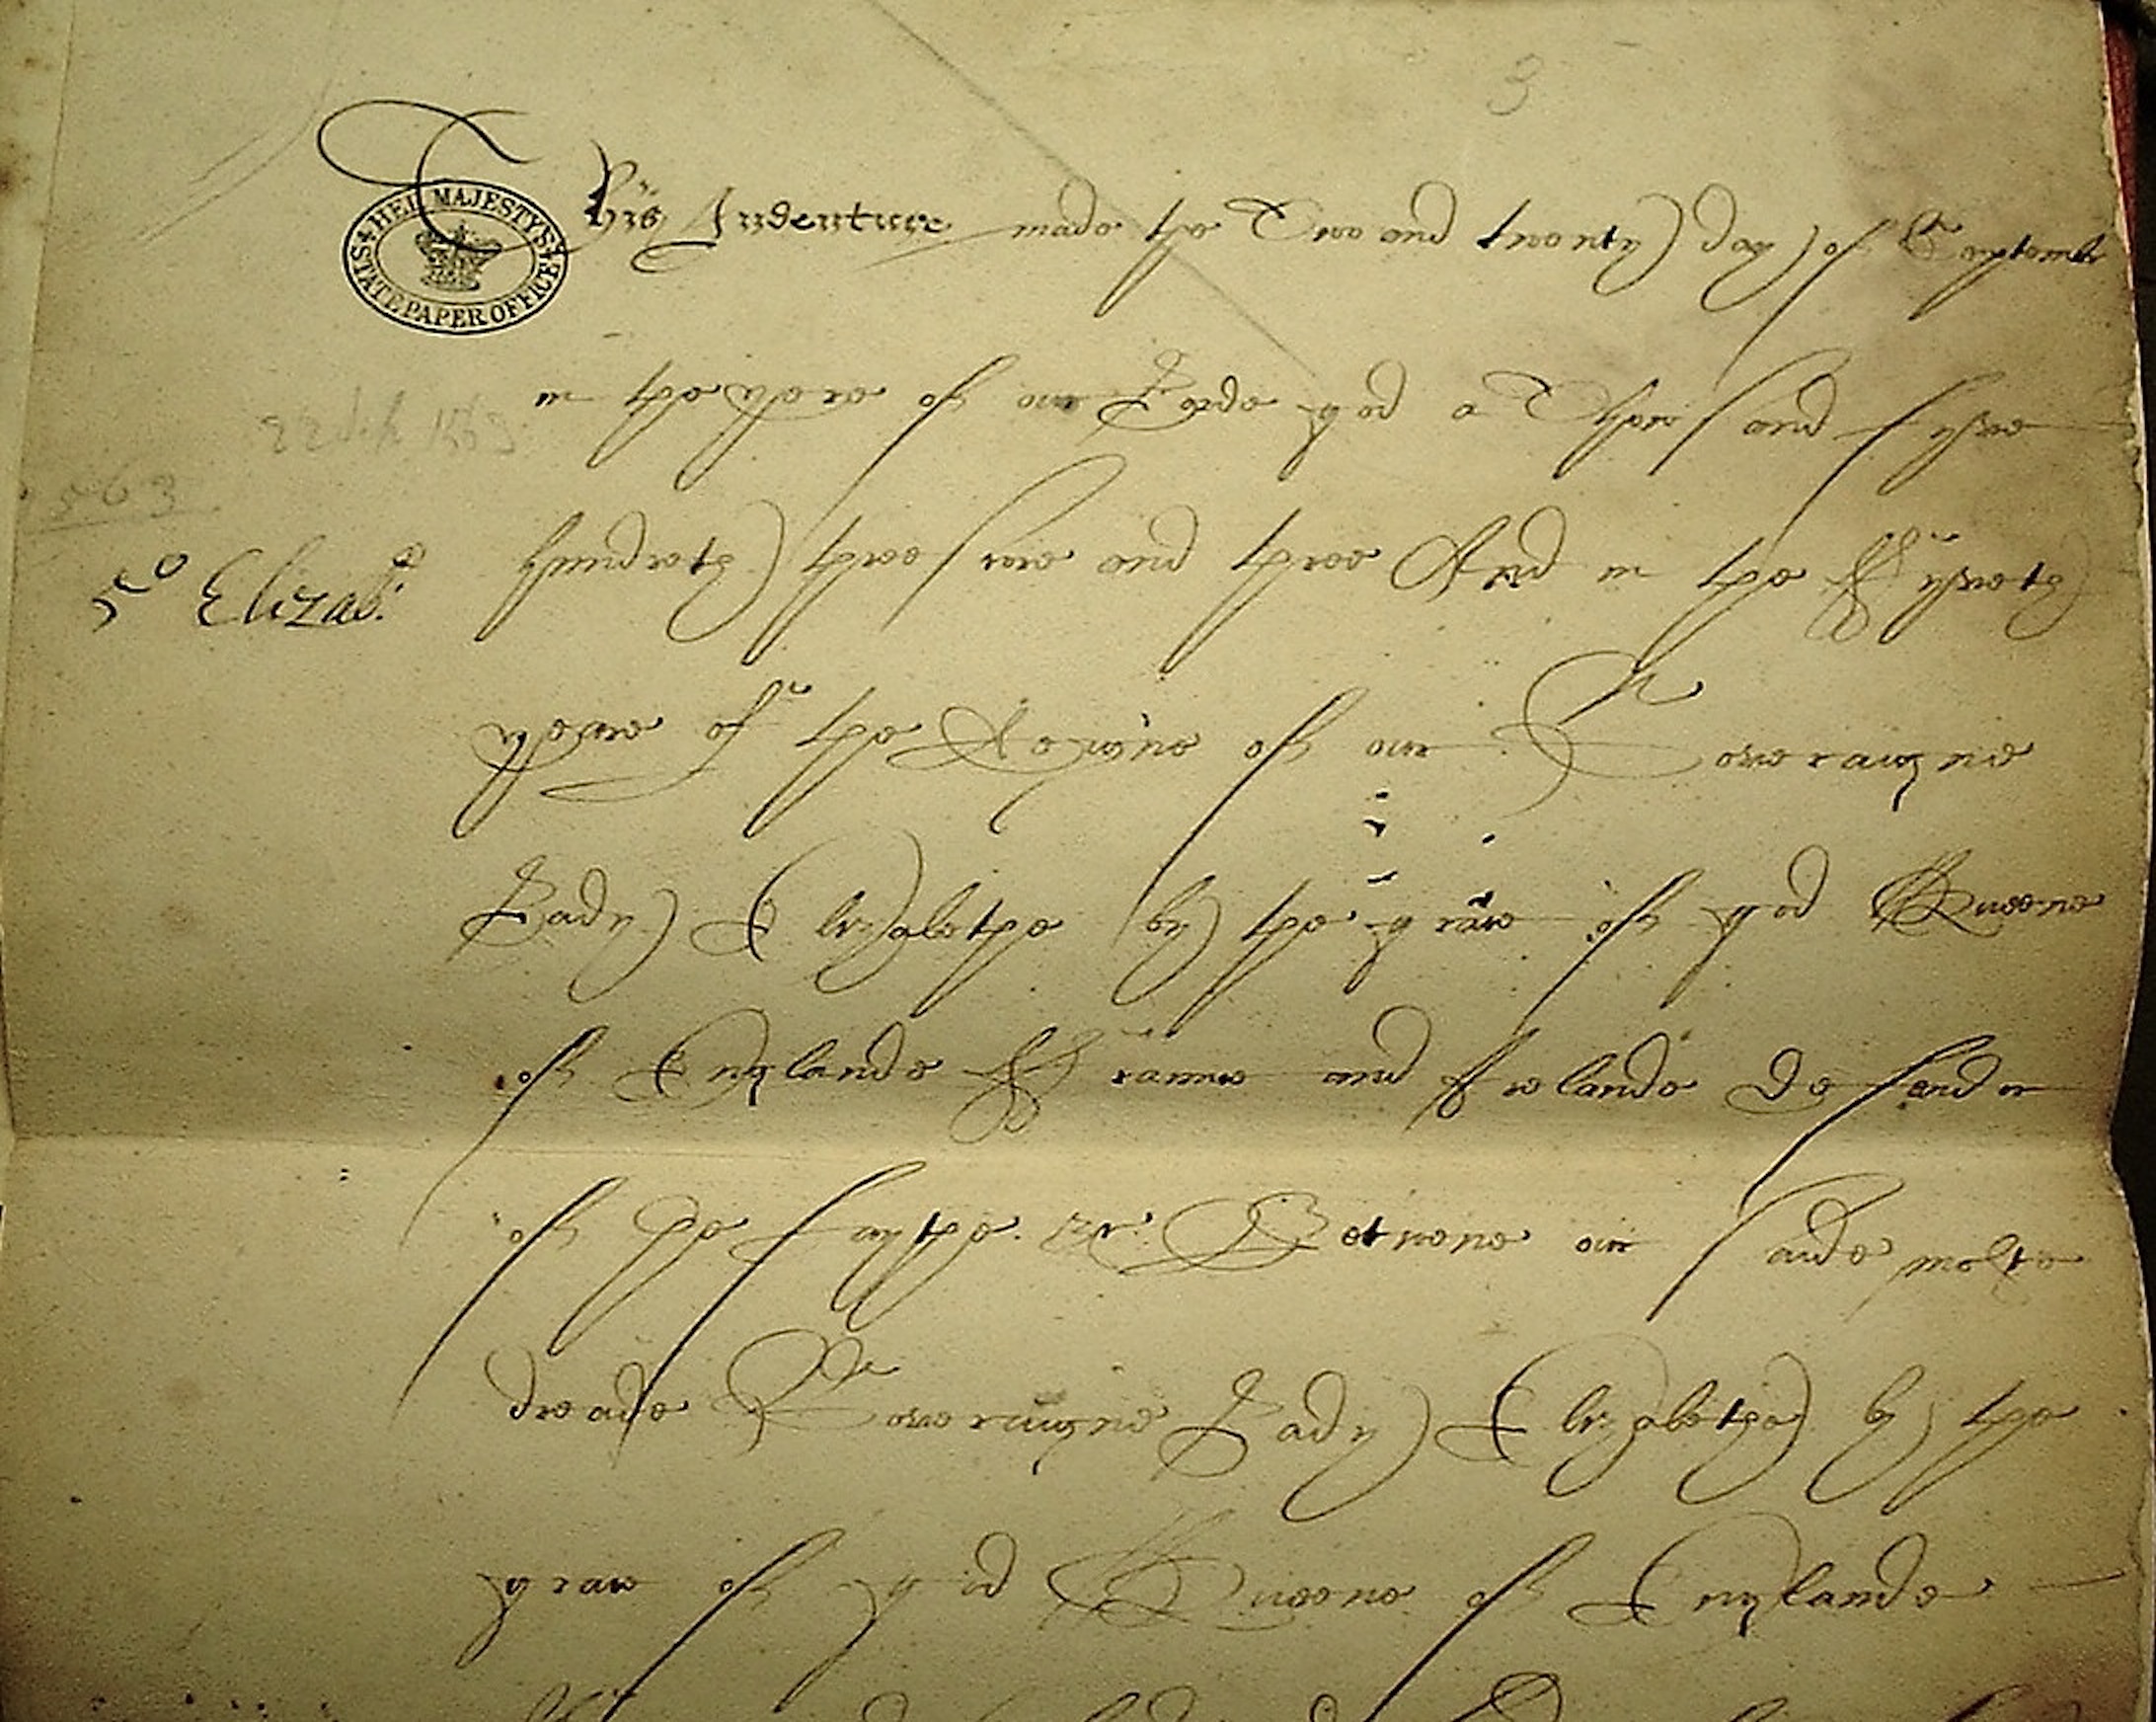 3
HER MAJESTY'S
STATE PAPER OFFICE
This Indenture made the Two and twenty day of Septembr
in the yere of our Lorde god a Thousand fyve
22 Sep 1563
1563
hundreth three score and three And in the ffyveth
5o Elizab:
yeare of the Reigne of our Soveraigne
Lady Elizabethe by the grace of god Queene
of Englande ffraunce and Irelande Defendor
of the faythe &c. Betwene our saide moste
dreade Soveraigne Lady Elizabethe by the
grace of god Queene of Englande